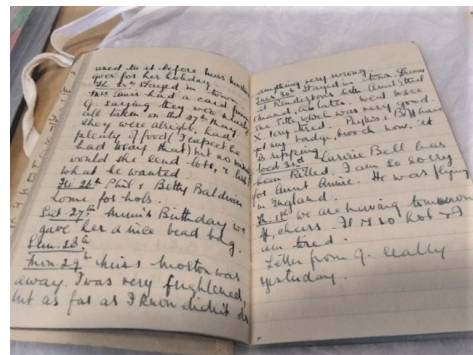 used to it before Miss Morton
goes for her holiday.
Th 25th Stayed in town
Mrs had a card from
G. saying they were
all taken on the 27th
they were alright, had
plenty of food (I expect he
had to say that) but no
would she send lots, & lists
what he wanted.
Fri 26th Phil & Betty Baldwin
home for hols.
Sat. 27th Mum's Birthday we
gave her a nice bead bag.
Sun. 28th
Mon 29th Miss Morton was
away. I was very frightened,
but as far as I know didn't do
anything very wrong
Tues 30th Stayed in town
at Rendezvous with
very good
very tired.
my badge, brooch now. It
is ripping.
Wed 31st Carrie Bell has
been killed. I am so sorry
for Aunt Annie. He was flying
in England.
we are having tomorrow
off, cheers. It is so hot & I
am tired.
Letter from G. really
yesterday.